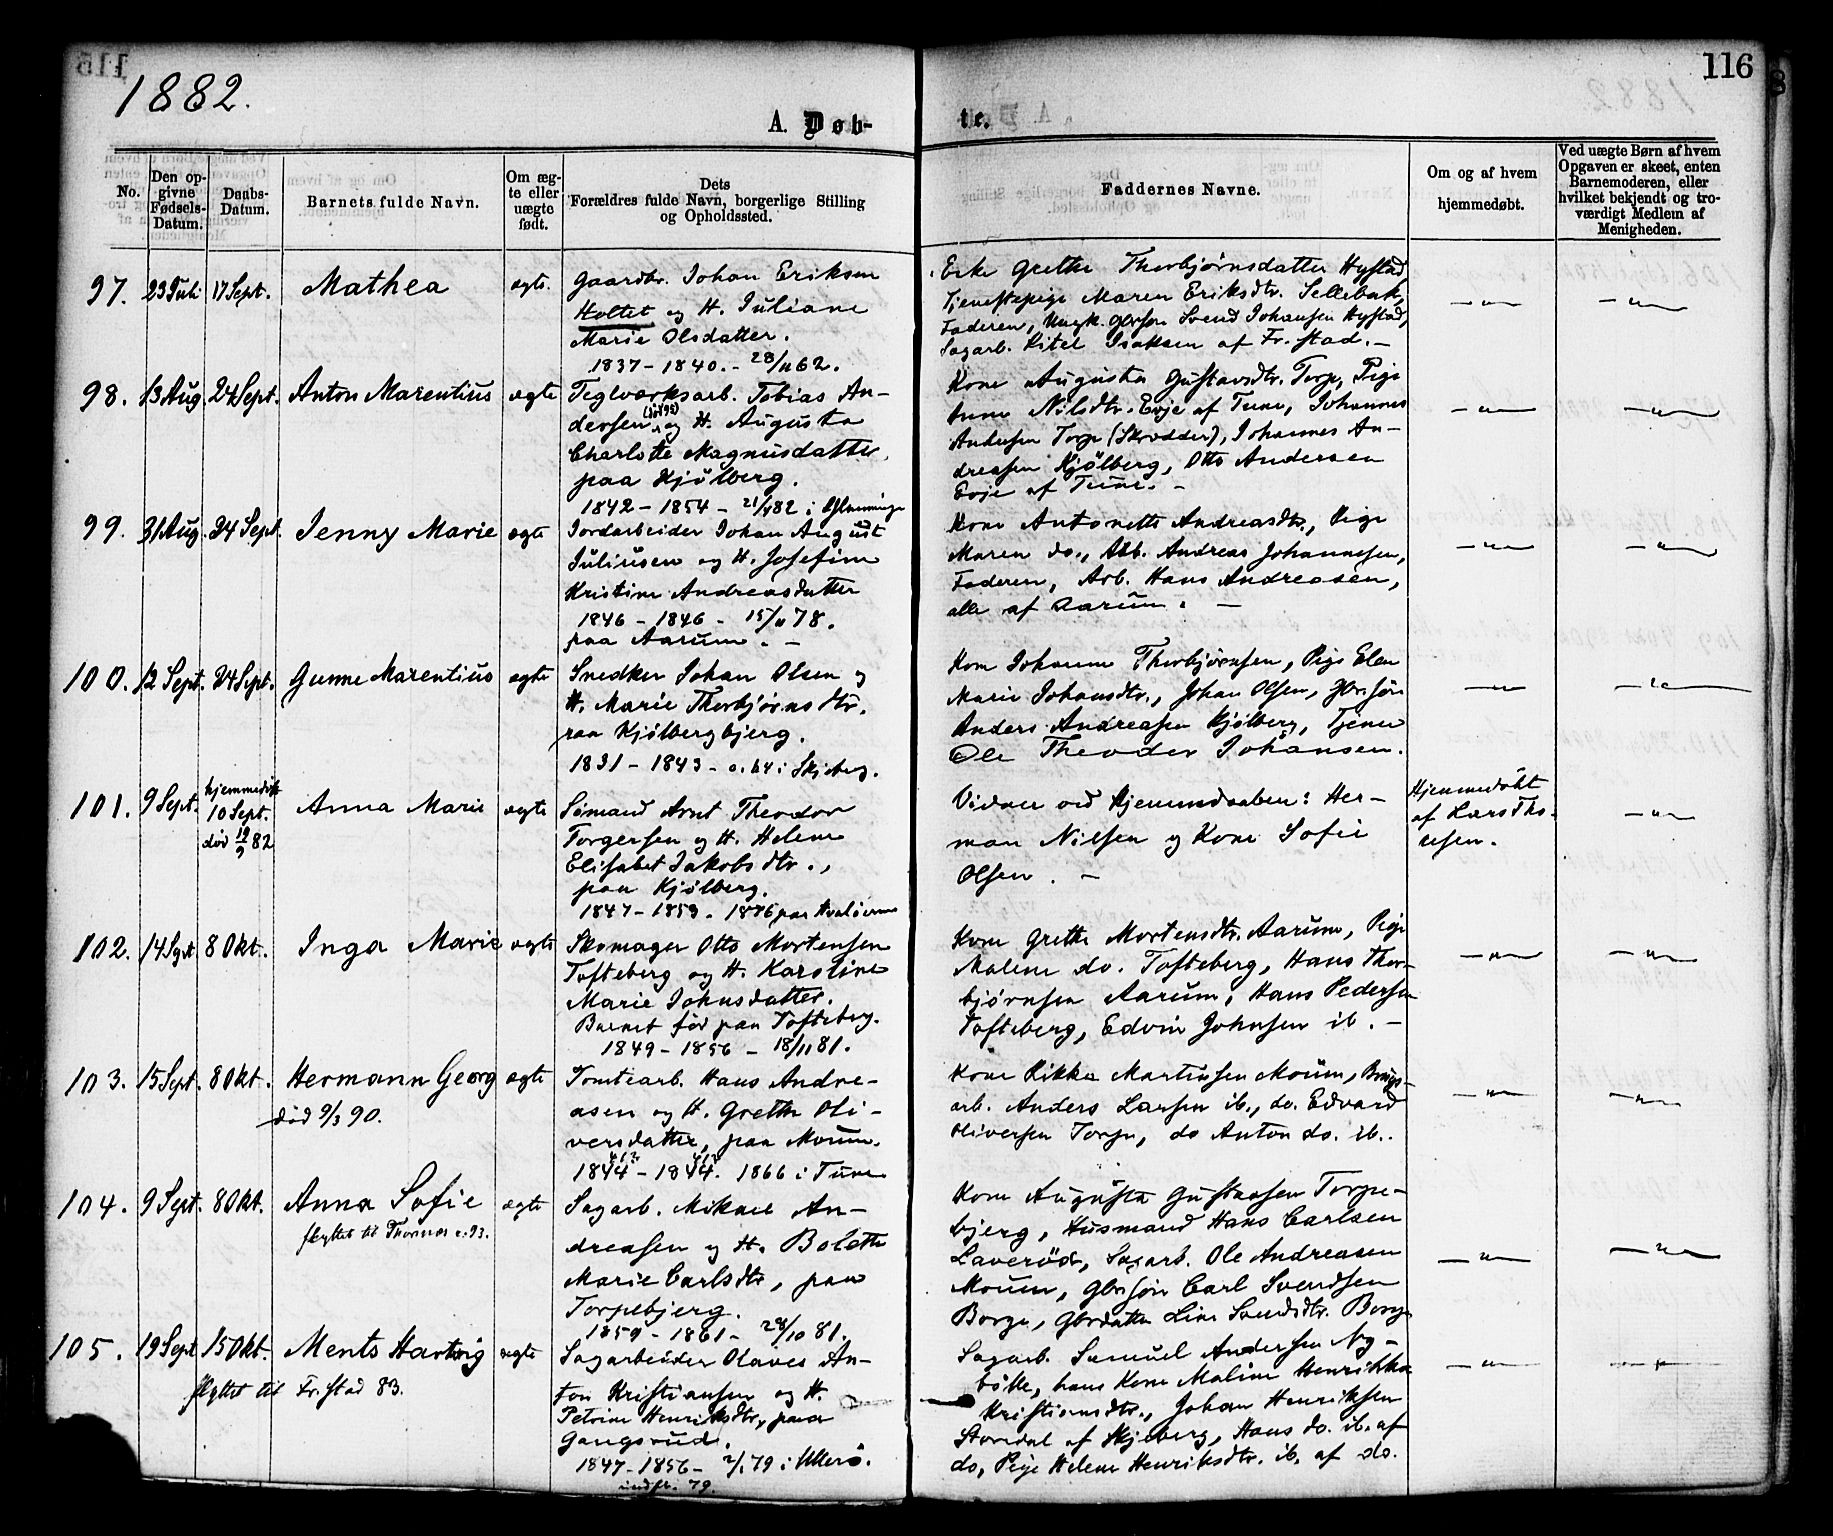 116
1882.
A. Døb-
te.
No.
Den op-
givne
Fødsels-
Datum.
Daabs-
Datum.
Barnets fulde Navn.
Om æg-
te eller
uægte
født.
Dets
Forældres fulde Navn, borgerlige Stilling
og Opholdssted.
Faddernes Navne.
Om og af hvem
hjemmedøbt.
Ved uægte Børn af hvem
Opgaven er skeet, enten
Barnemoderen, eller
hvilket bekjendt og tro-
værdigt Medlem af
Menigheden.
97. 23 Juli 17 Sept. Mathea ægte.
Gaardbr. Johan Eriksen
Holtet og H. Juliane
Marie Olsdatter.
1837 - 1840. - 28/11 62.
Enke Grethe Thorbjørnsdatter Hystad,
Tjenestepige Maren Eriksdtr. Sellebak,
Faderen, Ungk. Gbrsøn Svend Johansen Hystad,
Sagarb. Kitel Isaksen af Fr.stad. -
— " —
— " —
98. 13 Aug. 24 Sept. Anton Marentius ægte
Teglværksarb. Tobias An-
dersen og H. Augusta
Charlotte Magnusdatter,
paa Kjølberg.
1842 - 1854 - 21/4 82 i Glemminge
Kone Augusta Gustavsdtr. Torp, Pige
Anne Nilsdtr. Evje af Tune, Johannes
Andersen Torp (Skrædder), Johannes An-
dreasen Kjølberg, Otto Andersen
Evje af Tune. -
— " —
— " —
99. 31 Aug. 24 Sept. Jenny Marie ægte
Jordarbeider Johan August
Juliusen og H. Josefine
Kristine Andreasdatter
1846 - 1846 - 15/11 78.
paa Aarum. -
Kone Antonette Andreasdtr., Pige
Maren do., Arb. Andreas Johannesen,
Faderen, Arb. Hans Andreasen,
alle af Aarum. -
— " —
— " —
100. 12 Sept. 24 Sept. Gunne Marentius ægte
Snedker Johan Olsen og
H. Marie Thorbjørnsdtr.
paa Kjølbergbjerg.
1831 - 1843 - o. 64 i Skjeberg.
Kone Johanne Thorbjørnsen, Pige Elen
Marie Johansdtr., Johan Olsen, Gbrsøn
Anders Andreasen Kjølberg, Tjener
Ole Theodor Johansen.
— " —
— " —
101. 9 Sept. hjemmedøbt
10 Sept.
død 19/9 82
Anna Marie ægte
Sömand Arnt Theodor
Torgersen og H. Helene
Elisabet Jakobsdtr.,
paa Kjølberg.
1847 - 1853 - 1876 paa Hvaløerne
Vidner ved Hjemmedaaben: Her-
man Nilsen og Kone Sofie
Olsen. -
Hjemmedøbt
af Lars Tho-
resen.
— " —
102. 14 Sept. 8 Okt. Inga Marie ægte
Skomager Otto Mortensen
Tofteberg og H. Karoline
Marie Johnsdatter.
Barnet fød paa Tofteberg.
1849 - 1856 - 18/11 81.
Kone Grethe Mortensdtr. Aarum, Pige
Malene do. Tofteberg, Hans Thor-
bjørnsen Aarum, Hans Pedersen
Tofteberg, Edvin Johnsen ib. -
— " —
— " —
103. 15 Sept. 8 Okt. Hermann Georg ægte
død 9/3 90.
Tomtearb. Hans Andre-
asen og H. Grethe Oli-
versdatter, paa Moum.
1844 - 1844. 1866 i Tune
Kone Rikke Martinsen Moum, Brugs-
arb. Anders Larsen ib., do. Edvard
Oliversen Torp, do Anton do. ib..
— " —
— " —
104. 9 Sept. 8 Okt. Anna Sofie ægte
flyttet til
Sagarb. Mikael An-
dreasen og H. Bolette
Marie Carlsdtr, paa
Torpebjerg.
1859 - 1861 - 28/10 81.
Kone Augusta Gustavsen Torpe-
bjerg, Husmand Hans Carlsen
Laverød, Sagarb. Ole Andreasen
Moum, Gbrsøn Carl Svendsen
Borge, Gbrdatter Line Svendsdtr. Borge
— " —
— " —
105. 19 Sept 15 Okt. Ments Hartvig ægte
flyttet til Fr.stad 83.
Sagarbeider Olaves An-
ton Kristiansen og H.
Petrine Henriksdtr, paa
Gangsrud.
1847 - 1856 - 2/1 79 i Ullerø.
indfl. 79.
Sagarb. Samuel Andersen Ny-
bølle, hans Kone Maline Henrikka
Kristiansdtr., Johan Henriksen
Stordal af Skjeberg, Hans do. ib. af
do, Pige Helene Henriksdtr. ib. af do.
— " —
— " —